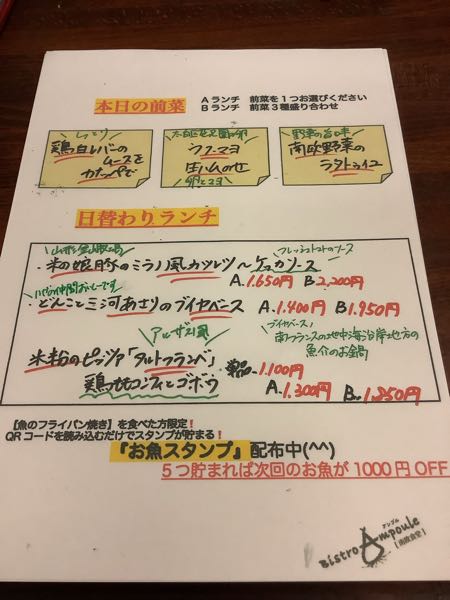 本日の前菜
Aランチ 前菜を1つお選びください
Bランチ 前菜3種盛り合わせ
しっとり
鶏白レバーの
ムースを
カナッペで
ウフ・マヨ
生ハムのせ
卵とマヨ
野菜の旨味
南欧野菜の
ラタトゥイユ
日替わりランチ
フレッシュトマトのソース
・米の娘豚のミラノ風カツレツ〜ケッカソース
A.1.650円 B.2.200円
・どんこと三河あさりのブイヤベース
A.1.400円 B.1.950円
ブイヤベース!
南フランスの地中海沿岸地方の
魚介のお鍋
アルザス風
米粉のピッツァ「タルトフランベ」
単品.1.100円
鶏ももコンフィとゴボウ
A.1.300円 B.1.850円
【魚のフライパン焼き】を食べた方限定!
QRコードを読み込むだけでスタンプが貯まる!
『お魚スタンプ』配布中(^^)
5つ貯まれば次回のお魚が1000円OFF
アンプル
Bistro Ampoule